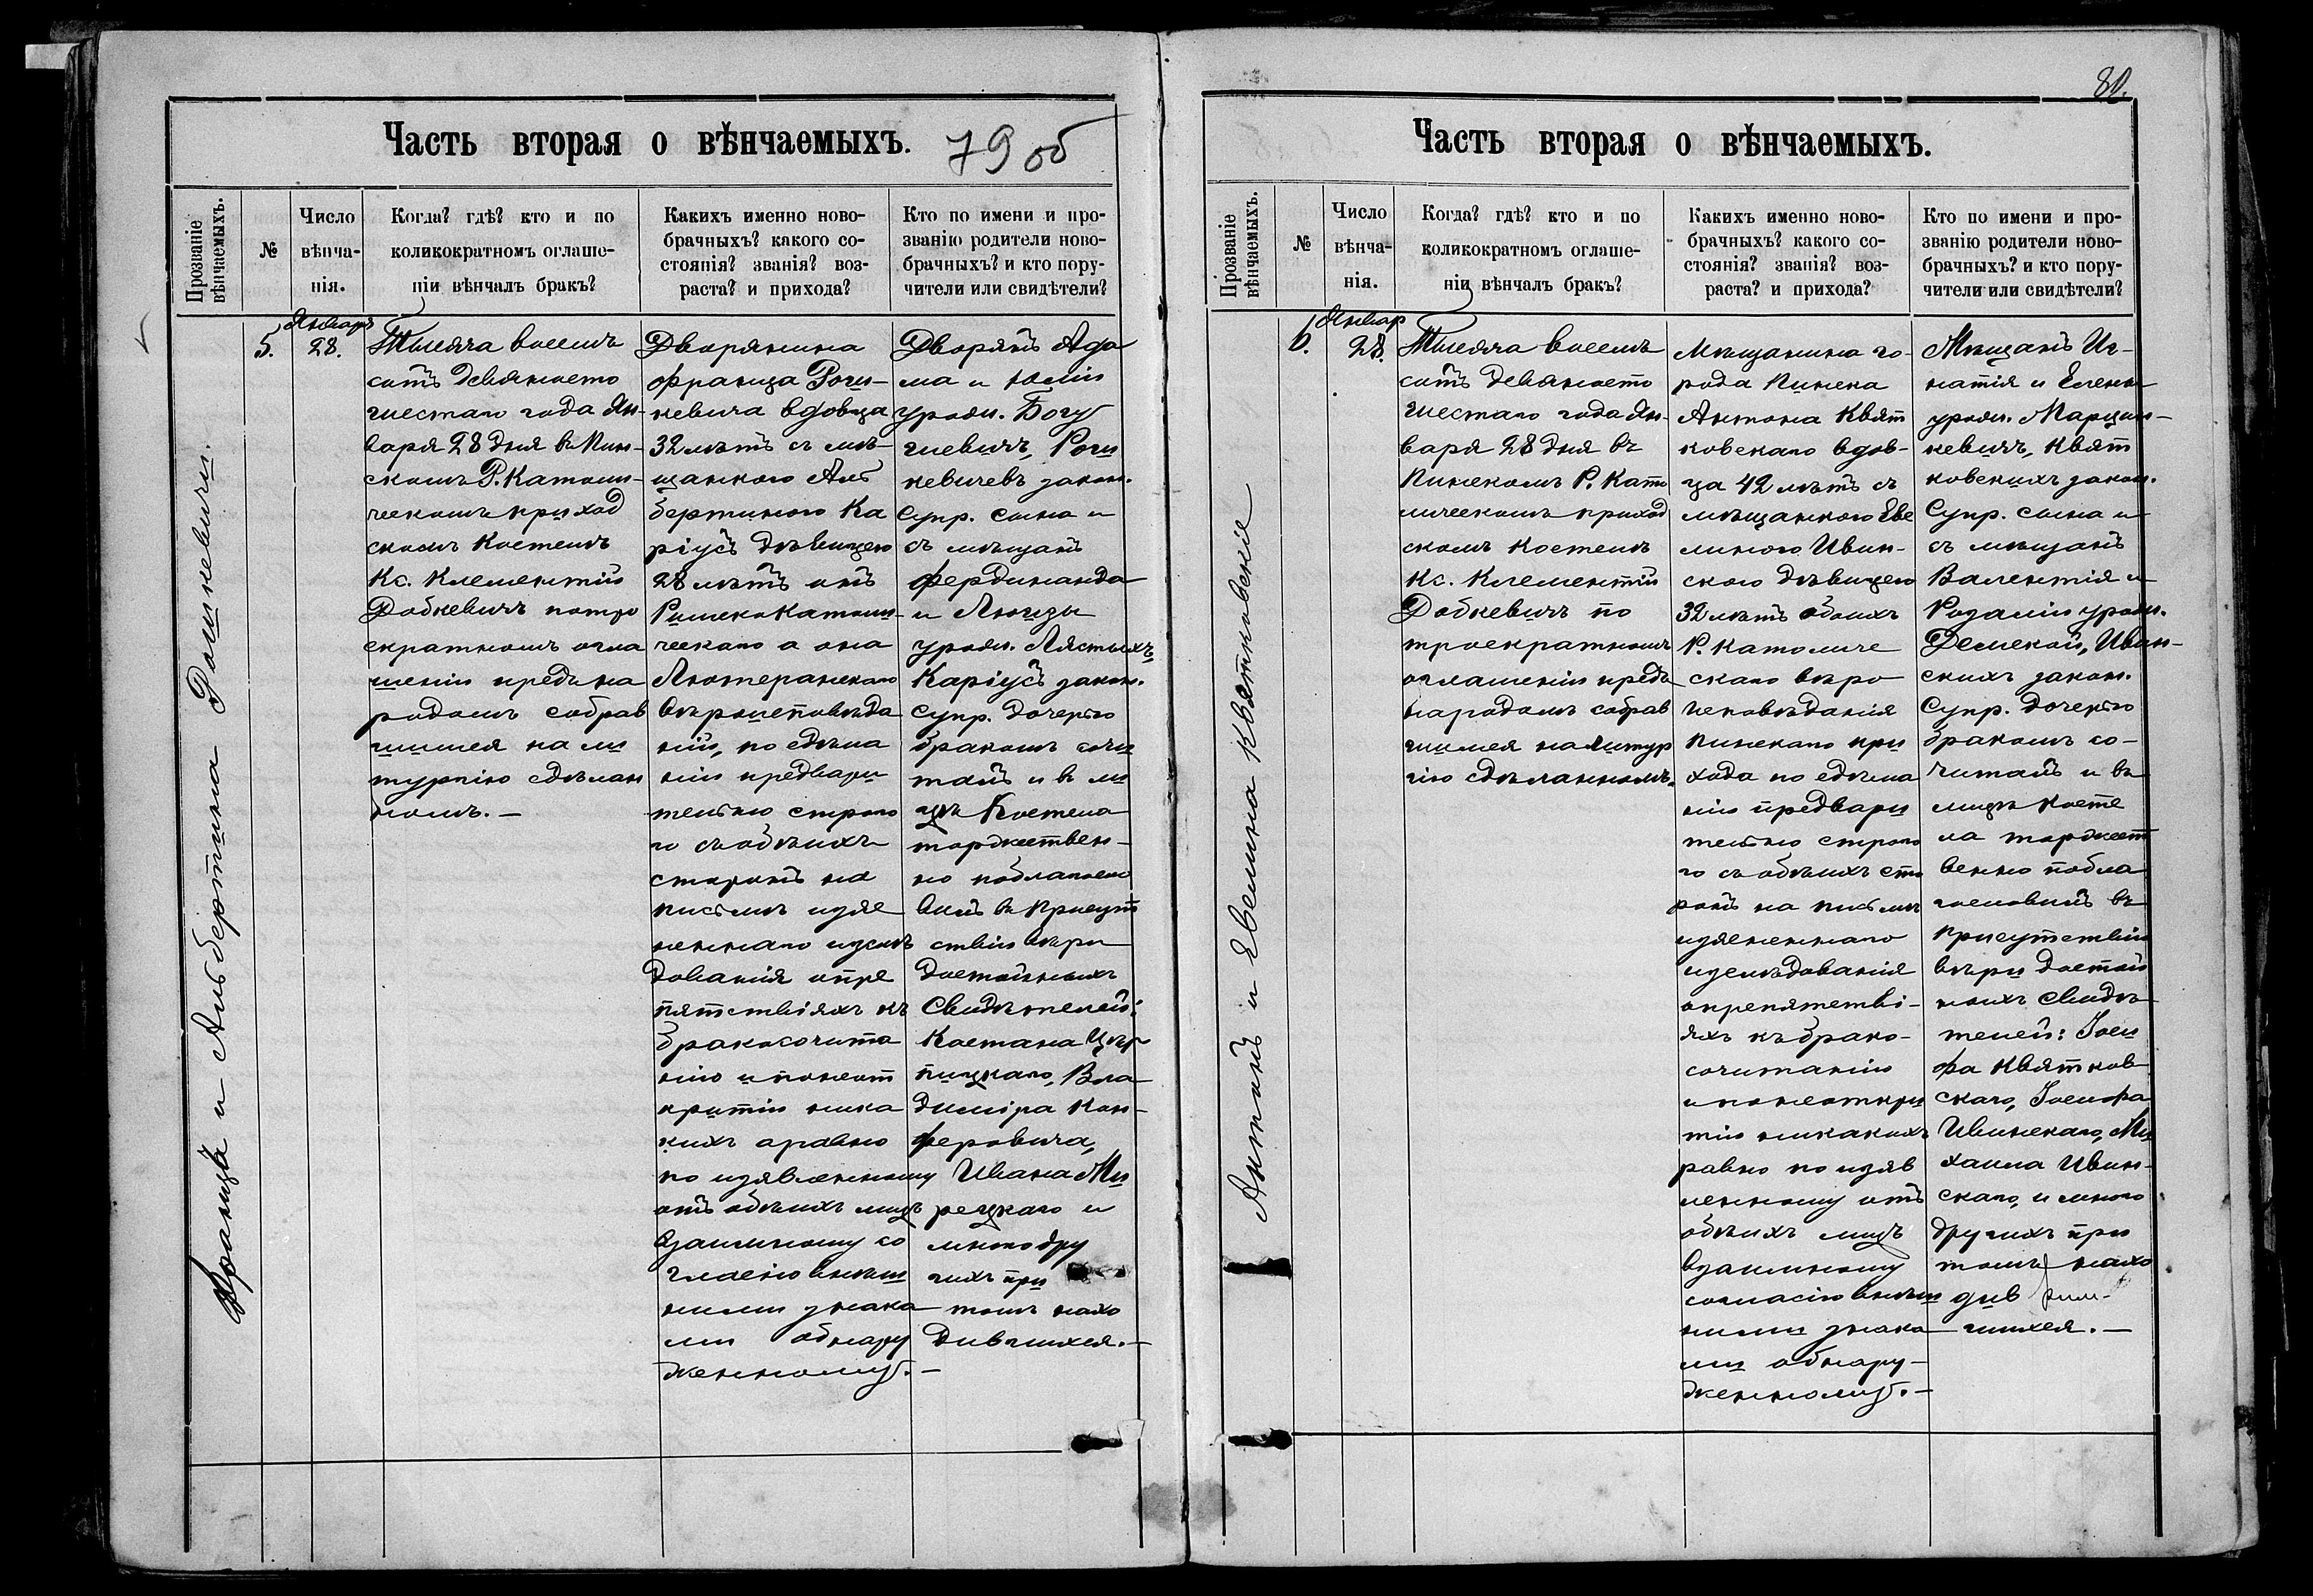 Часть вторая о вѣнчаемыхъ.
79 об
Прозваніе вѣнчаемыхъ.
№
Число
вѣнча-
нія.
Когда? гдѣ? кто и по
коликократномъ оглаше-
ніи вѣнчалъ бракъ?
Какихъ именно ново-
брачныхъ? какого со-
стоянія? званія? воз-
раста? и прихода?
Кто по имени и про-
званію родители ново-
брачныхъ? и кто пору-
чители или свидѣтели?
Францъ и Альбертина
5.
Января
28.
Тысяча восемь
сотъ девяносто
шестаго года Ян-
варя 28 дня въ Пин-
скомъ Р. Католи-
ческомъ приход
скомъ Костелѣ
Кс. Клементій
Добкевичъ по тро
екратномъ огла
шеніи предъ на
родомъ собрав
шимся на ли
тургію сдѣлан
номъ. —
Дворянина
Франца
невича вдовца
32 лѣтъ съ мѣ-
щанкою Аль
бертиною Ка
ріусъ дѣвицею
28 лѣтъ онъ
Римско Католи-
ческаго а она
Лютеранскаго
вѣроисповѣда
ній, по сдѣла
ніи предвари
тельно строго
го съ обѣихъ
сторонъ на
письмѣ изяс
неннаго изслѣ
дованія о пре
пятствіяхъ къ
бракосочита
нію и по неот
крытіи ника
кихъ а равно
по изявленному
отъ обѣихъ лицъ
взаимному со
гласію внѣш
ними знака
ми обнару
женному. —
Дворянъ Ада
ма и Юліи
урожд. Богу
шевичъ,
невичевъ закон.
Супр. сына и
съ мѣщанъ
Фердинанда
и Люизы
урожд.
Каріусъ закон.
Супр. дочерью
бракомъ сочи
талъ и въ ли
цѣ Костела
торжествен-
но поблагосло
вилъ въ присут
ствіи вѣри
достойныхъ
Свидѣтелей:
Костана
Вла
диміра Кон-
феровича,
Ивана Ми
рецкаго и
много дру
гихъ при
томъ нахо
дившихся. —
80.
Часть вторая о вѣнчаемыхъ.
Прозваніе вѣнчаемыхъ.
№
Число
вѣнча-
нія.
Когда? гдѣ? кто и по
коликократномъ оглаше-
ніи вѣнчалъ бракъ?
Какихъ именно ново-
брачныхъ? какого со-
стоянія? званія? воз-
раста? и прихода?
Кто по имени и про-
званію родители ново-
брачныхъ? и кто пору-
чители или свидѣтели?
Антонъ и Евелина Квятковскіе
6.
Январ
28.
Тысяча восемь
сотъ девяносто
шестаго года Ян-
варя 28 дня въ
Пинскомъ Р. Като
лическомъ приход
скомъ Костелѣ
Кс. Клементій
Добкевичъ по
троекратномъ
оглашеніи предъ
народомъ собрав
шимся на литур
гію сдѣланномъ.
Мѣщанина го-
рода Пинска
Антона Квят
ковскаго вдов-
ца 42 лѣтъ съ
мѣщанкою Еве
линою Ивин-
скою дѣвицею
32 лѣтъ обоихъ
Р. Католиче
скаго вѣро
исповѣданія
Пинскаго при
хода по сдѣла
ніи предвари
тельно строго
го съ обѣихъ сто
ронъ на письмѣ
изясненнаго
изслѣдованія
о препятстві-
яхъ къ брако-
сочитанію
и по неоткры
тіи никакихъ
равно по изяв
ленному отъ
обѣихъ лицъ
взаимному
согласію внѣш
ними знака
ми обнару-
женному. —
Мѣщанъ Иг-
натія и Елены
урожд. Марцин-
кевичъ, Квят
ковскихъ закон.
Супр. сына и
съ мѣщанъ
Валентія и
Розаліи урожд.
Ивин-
скихъ закон.
Супр. дочерью
бракомъ со-
читалъ и въ
лицѣ Косте
ла торжест
венно побла
гословилъ въ
присутствіи
вѣри достой
ныхъ Свидѣ
телей: Іоси
фа Квятков
скаго, Іосифа
Ивинскаго, Ми
хаила Ивин-
скаго, и много
другихъ при
томъ нахо
див
шихся. —